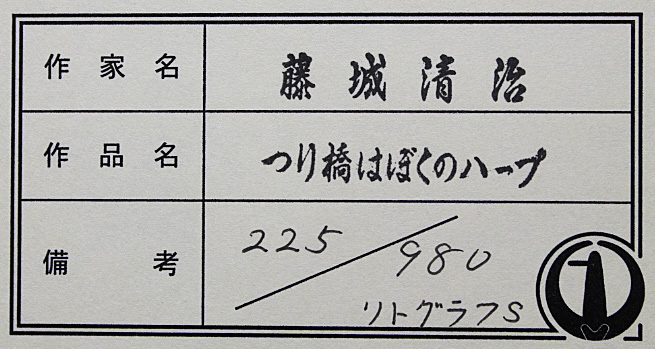 作家名 藤城清治
作品名 つり橋はぼくのハープ
備考 225/980
リトグラフS